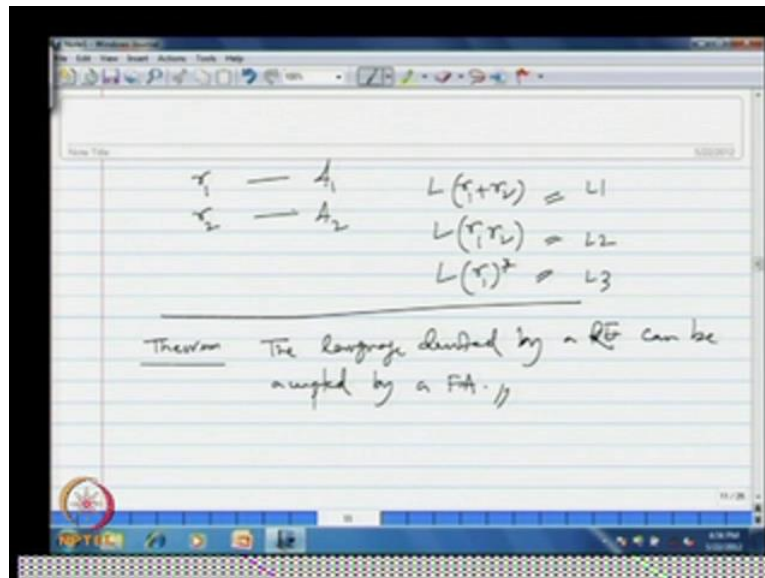 Note1 - Windows Journal
File Edit View Insert Actions Tools Help
Note Title
5/22/2012
r₁ — A₁
r₂ — A₂
L(r₁+r₂) = L1
L(r₁r₂) = L2
L(r₁)* = L3
Theorem The language denoted by a RE can be
accepted by a FA.
11/26
NPTEL